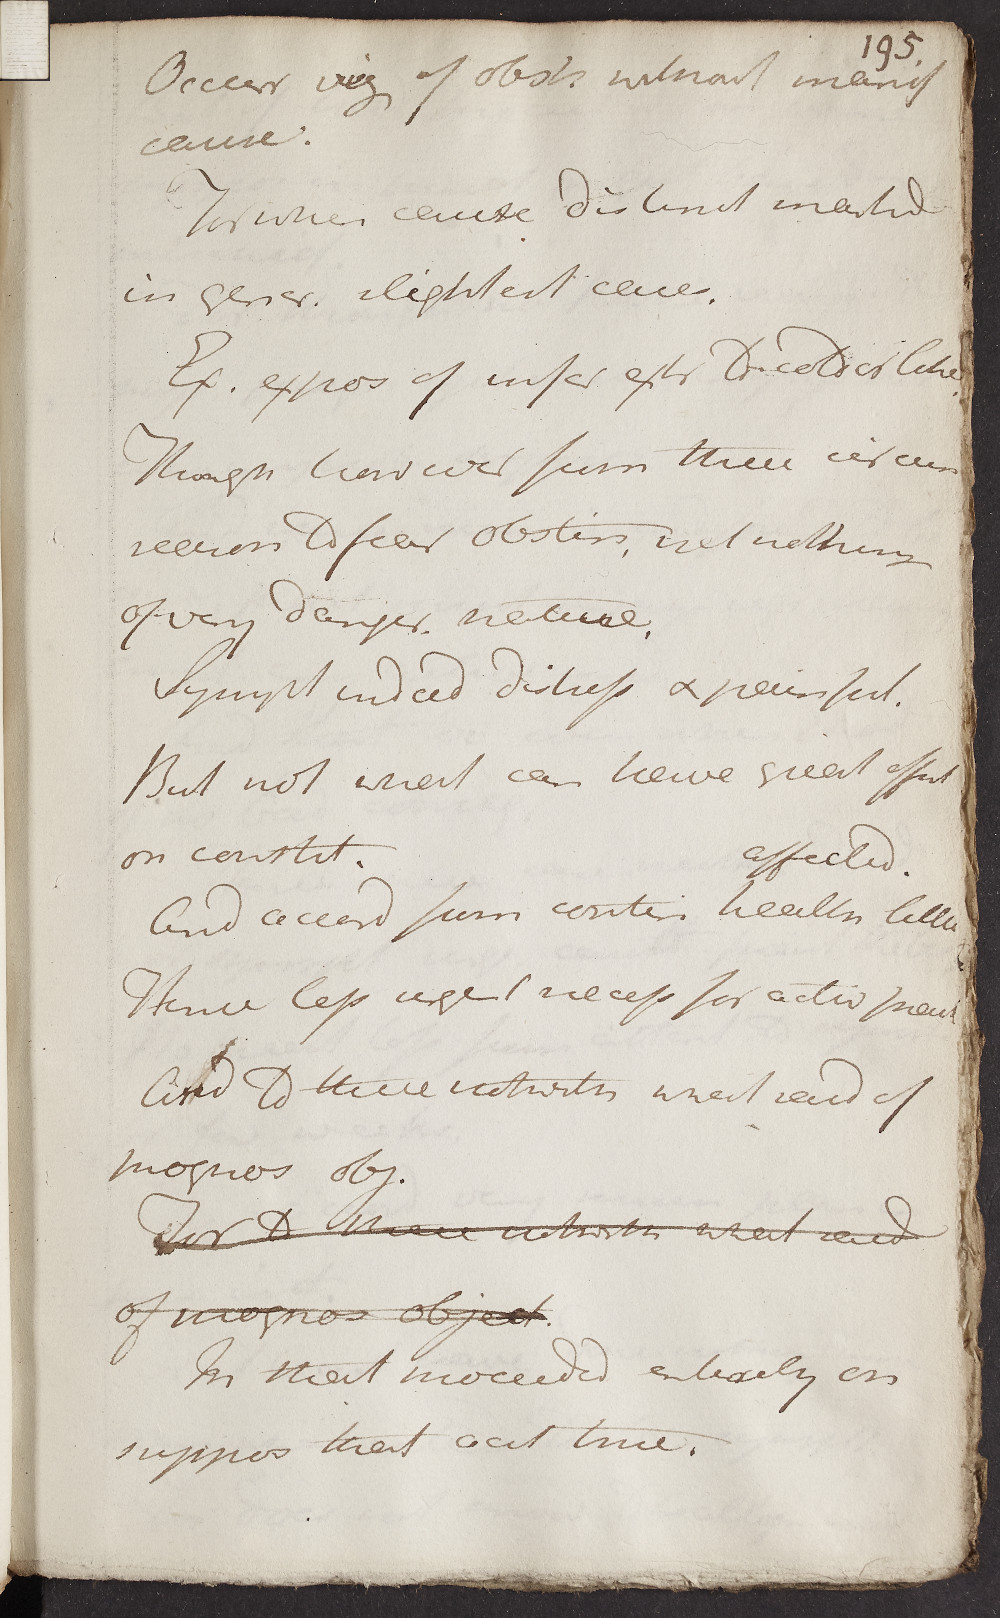 195.
Occurr of obst. without manif
cause.
For when cause distinct marked
in gener. slightest caus.
Ex. expos of infer extr to cold or like.
Though however from these circum
reason to fear obstin, yet nothing
of very danger. nature.
Sympt indeed distress & painful.
But not what can have great effect
on constit.
affected.
And accord from contin health little
Hence less urgent necess for activ pract
And to these notwith what said of
prognos obj.
For to these notwith what said
of prognos object.
In that proceeded entirely on
suppos that acet true.